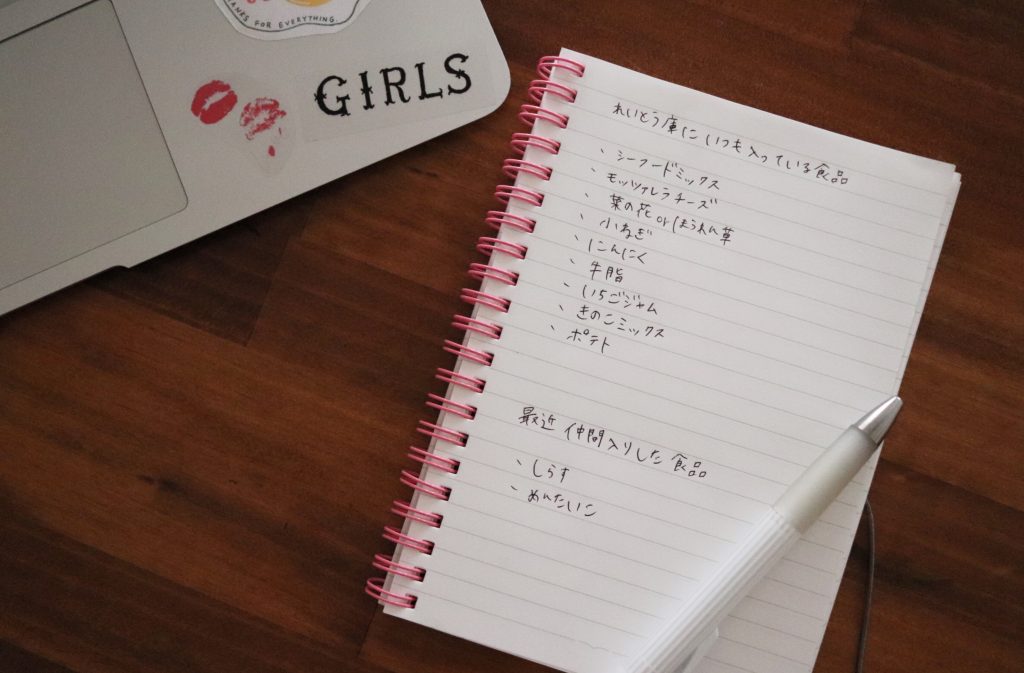 THANKS FOR EVERYTHING.
GIRLS
れいとう庫に いつも入っている食品
、シーフードミックス
、モッツァレラチーズ
、菜の花 or ほうれん草
、小ねぎ
、にんにく
、牛脂
、いちごジャム
、きのこミックス
、ポテト
最近 仲間入りした 食品
、しらす
、めんたいこ